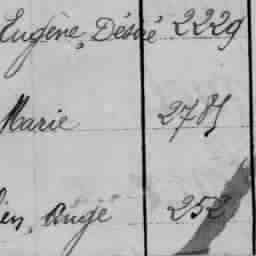 Eugène, Désiré 2229
Marie 2785
Ange 252